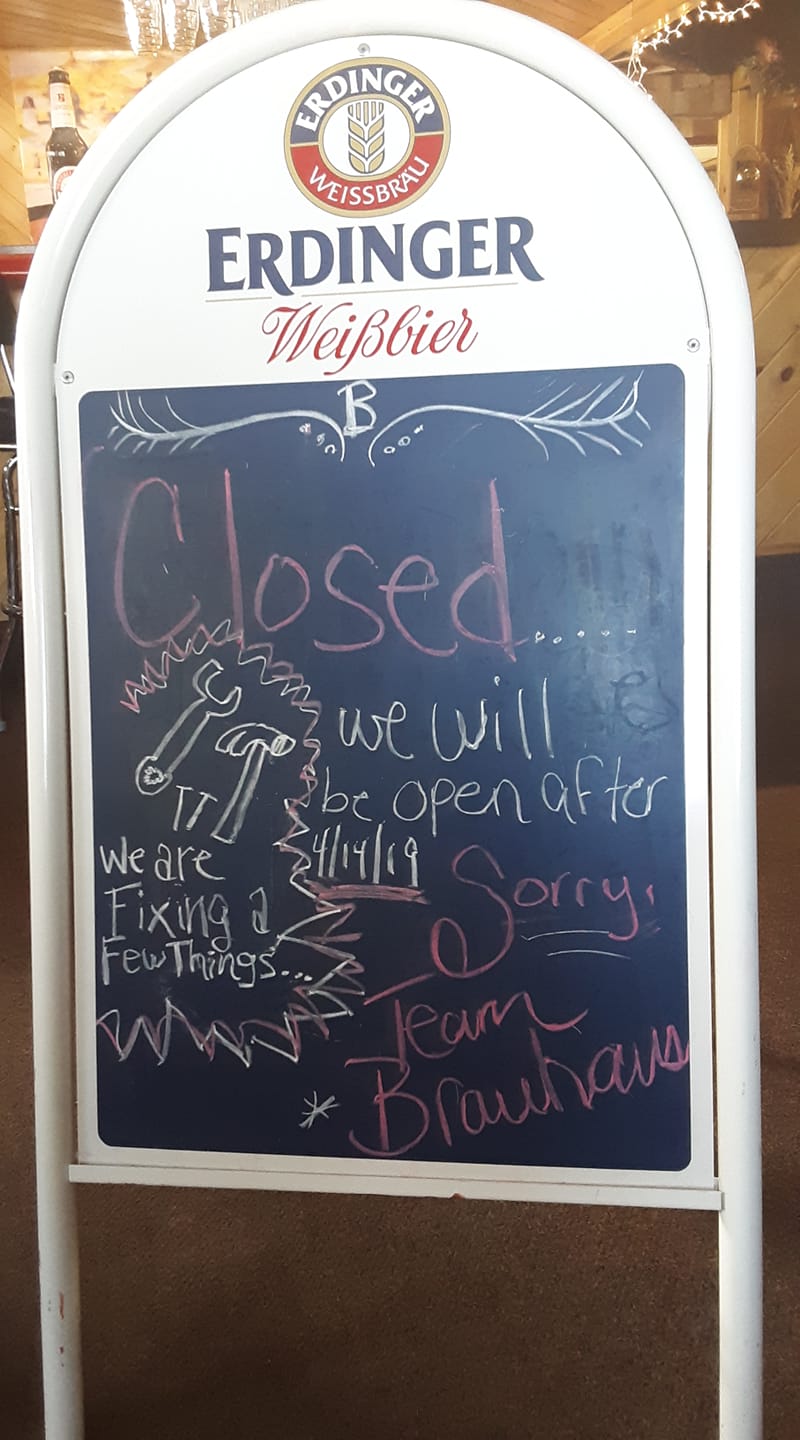 ERDINGER
WEISSBRÄU
ERDINGER
Weißbier
B
Closed.....
we will
be open after
4/14/19
We are
Fixing a
Few Things...
Sorry,
Team
* Brauhaus